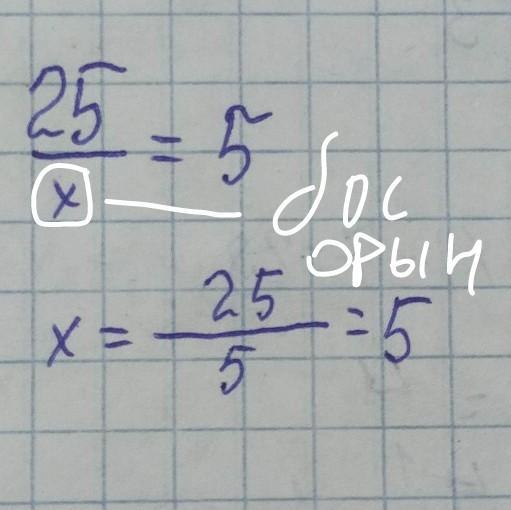 25/x = 5
бос
орын
x = 25/5 = 5